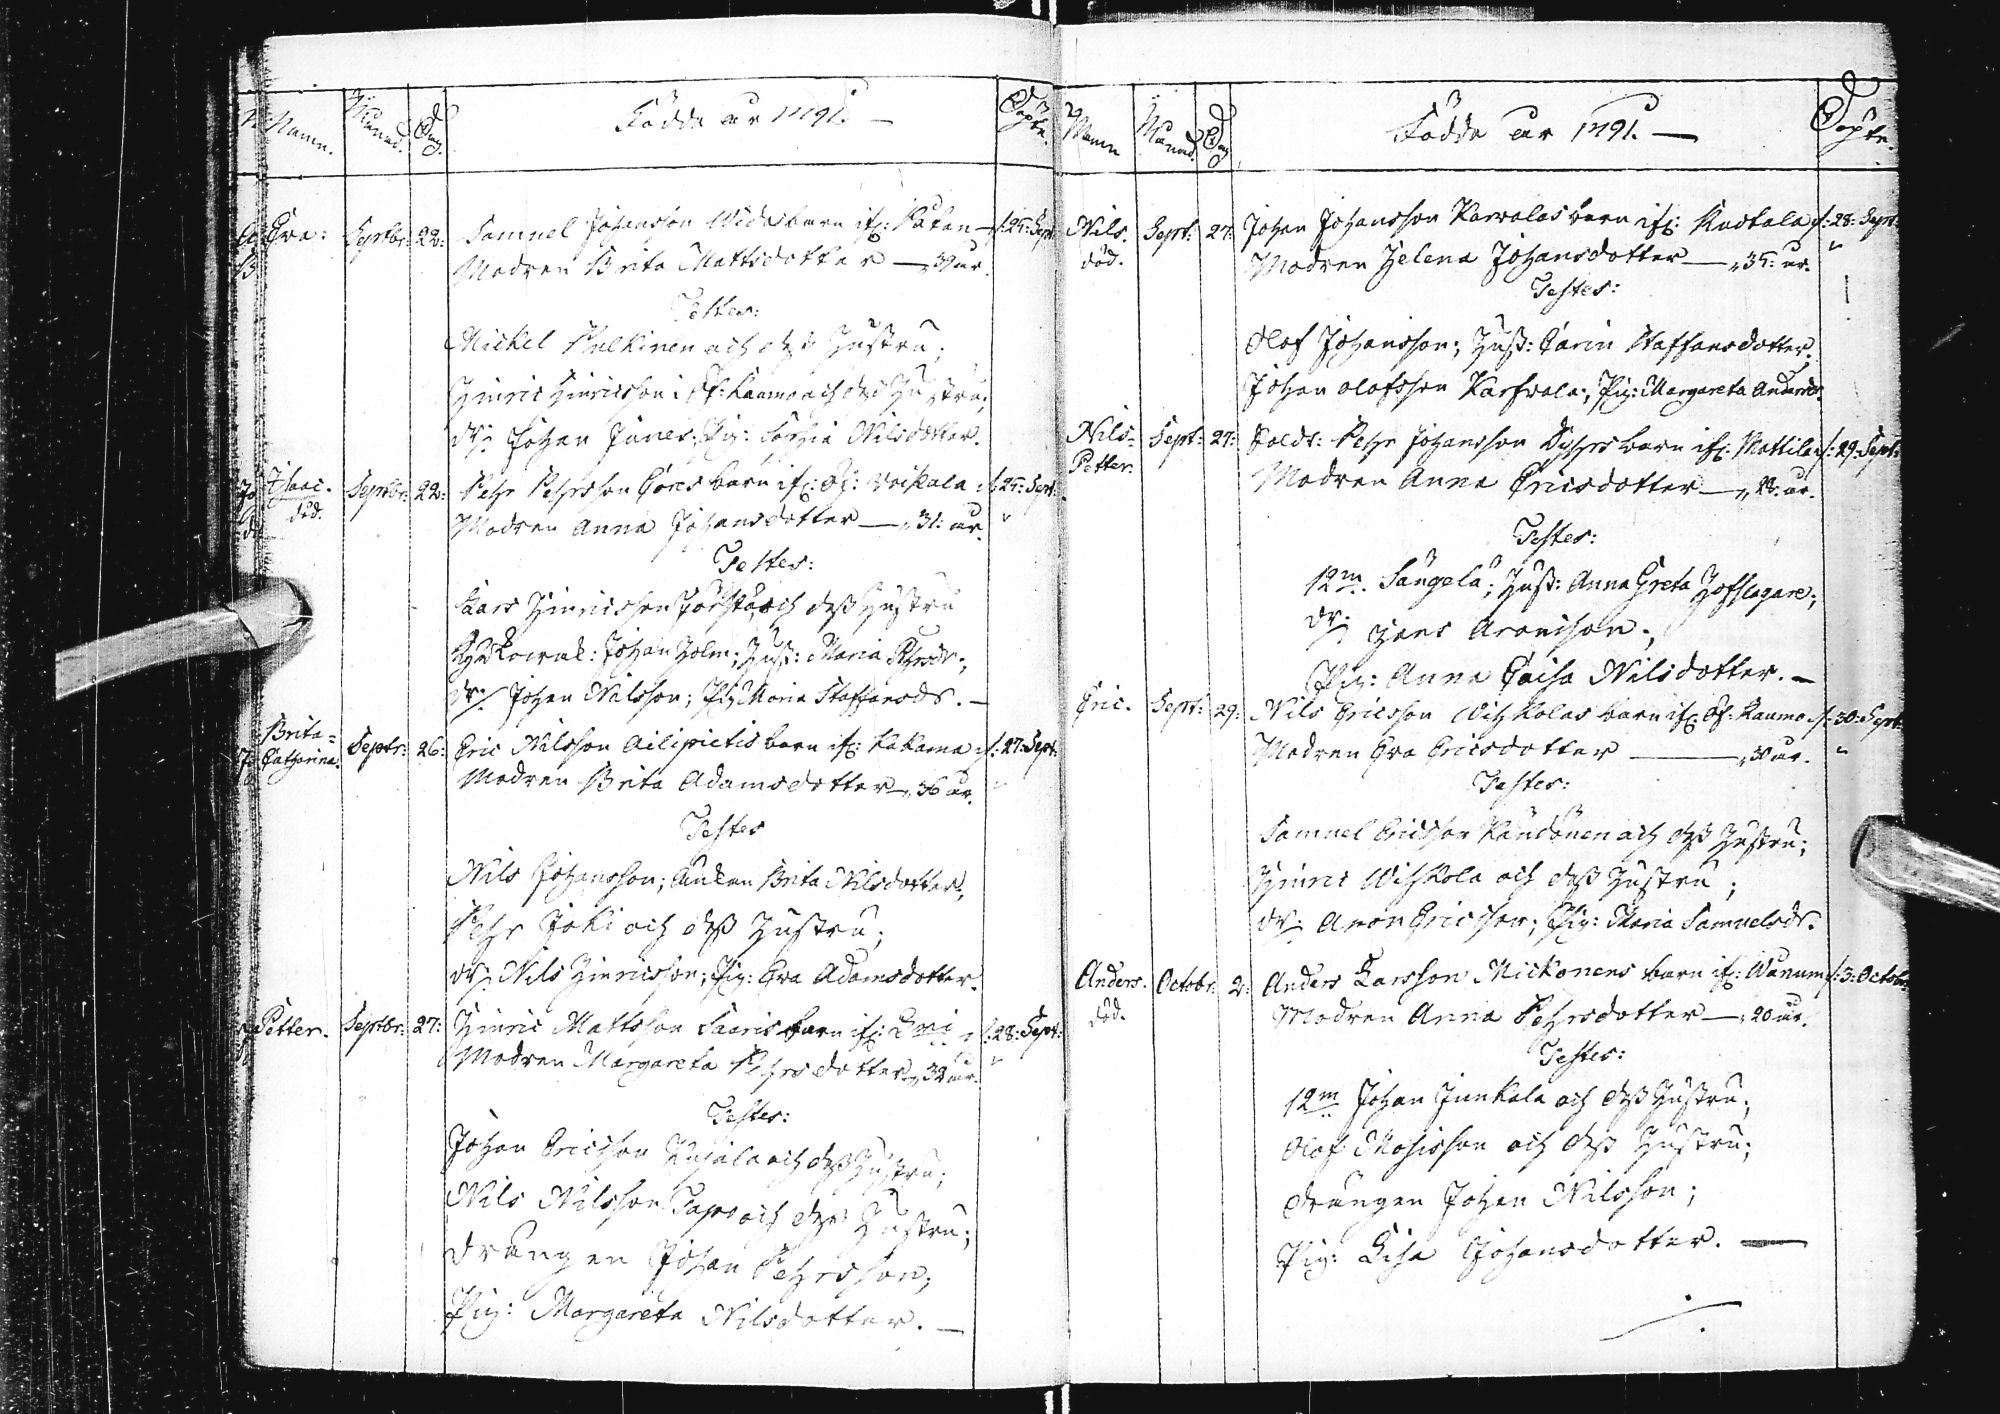 Namn. Månad. Dag. Födde år 1791. — Döpte.
Eva: Septbr: 22: Samuel Johansson Widas barn ifr: — d: 25: Sept:
Modren Brita Mattsdotter — 39 år.
Testes:
Mickel Pulkinen och dess Hustru;
Hinric Hinricsson i Öf: Raumo och dess Hustru;
Dr: Johan Junes; Pig: Sophia Nilsdotter.
Isaac. Septbr: 22: Pehr Pehrsson Görs barn ifr: Öf: Voickala d: 25: Sept:
död. Modren Anna Johansdotter — 31: år
Testes:
Lars Hinricsson och dess Hustru
Johan Holm; Hust: Maria Pehrsdr:;
Dr: Johan Nilsson; Pig: Maria Staffansdr. —
Brita=
Catharina. Septr: 26: Eric Nilsson Ailipietis barn ifr: Kakama d: 27: Sept:
Modren Brita Adamsdotter — 36 år.
Testes
Nils Johansson; Enkan Brita Nilsdotter;
Pehr Joki och dess Hustru;
Dr: Nils Hinricsson; Pig: Eva Adamsdotter.
Petter. Septbr: 27: Hinric Mattsson Saaris barn ifr: d: 28: Sept:
Modren Margareta Pehrsdotter — 32 år.
Testes:
Johan Ericsson Kujala och dess Hustru;
Nils Nilsson Tapio och dess Hustru;
Drängen Johan Pehrsson;
Pig: Margareta Nilsdotter. —
Namn Månad. Dag Födde år 1791. — Döpte.
Nils. Sept: 27: Johan Johansson Karvalas barn ifr: Kuckola d: 28: Sept:
död. Modren Helena Johansdotter — 35: år.
Testes:
Olof Johansson; Hust: Carin Staffansdotter;
Johan Olofsson Karfvala; Pig: Margareta Andersd.
Nils=
Petter. Sept: 27: Sold: Pehr Johansson barn ifr: Mattila d: 29: Sept:
Modren Anna Ericsdotter — 28: år.
Testes:
12m. Sangela; Hust: Anna Greta Hofslagare;
Dr: Hans Aronsson;
Pig: Anna Caisa Nilsdotter. —
Eric. Sept: 29: Nils Ericsson Wihkolas barn ifr: Öf: Raumo d: 30: Sept:
Modren Eva Ericsdotter — 30 år.
Testes:
Samuel Ericsson och dess Hustru;
Hinric Wihkola och dess Hustru;
Dr: Aron Ericsson; Pig: Maria Samuelsdr.
Anders. Octobr: 2: Anders Larsson Mickonens barn ifr: d: 3: Octobr:
död. Modren Anna Pehrsdotter — 20 år.
Testes:
12m Johan Junkala och dess Hustru;
Olof Mosisson och dess Hustru;
Drängen Johan Nilsson;
Pig: Lisa Johansdotter. —